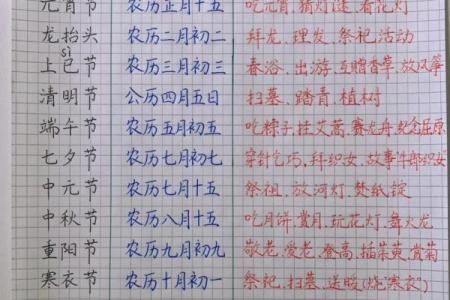 元宵节 农历正月十五 吃元宵、猜灯谜、看花灯
龙抬头 农历二月初二 拜龙、理发、祭祀活动
sì
上巳节 农历三月初三 春浴、出游、互赠香草、放风筝
清明节 公历四月五日 扫墓、踏青、植树
端午节 农历五月初五 吃粽子、挂艾蒿、赛龙舟、纪念屈原
七夕节 农历七月初七 穿针乞巧、拜织女、故事"牛郎织女"
中元节 农历七月十五 祭祖、放河灯、焚纸锭
中秋节 农历八月十五 吃月饼、赏月、玩花灯、舞火龙
重阳节 农历九月初九 敬老、爱老、登高、插茱萸、赏菊
寒衣节 农历十月初一 祭祀、扫墓、送暖(烧"寒衣")